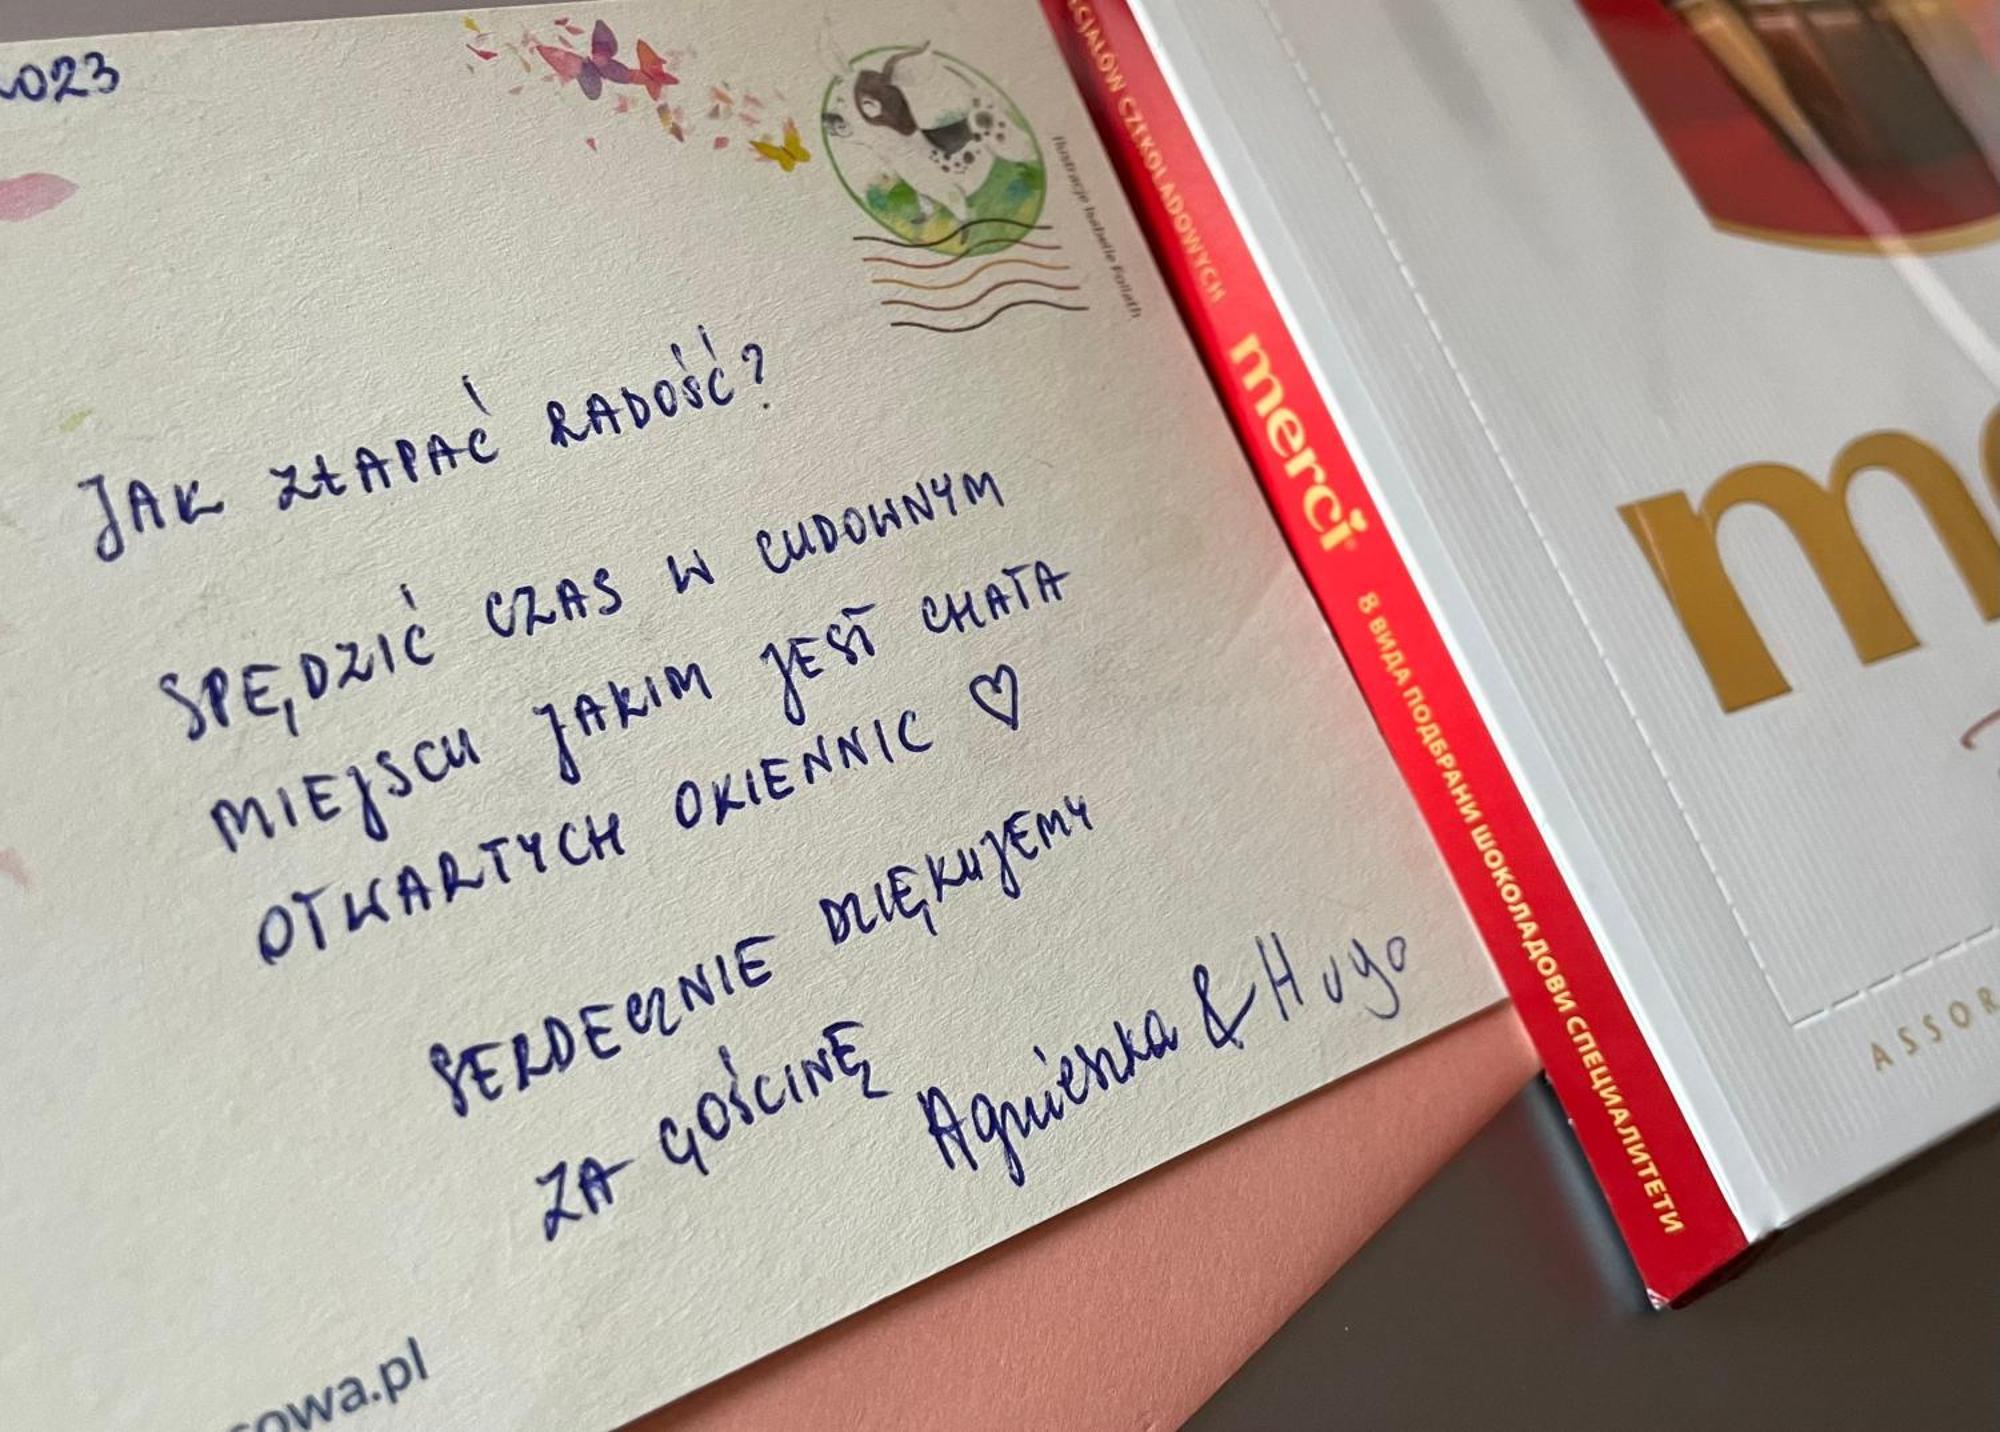 2023
Ilustracje Isabelle Follath
JAK ZŁAPAĆ RADOŚĆ?
SPĘDZIĆ CZAS W CUDOWNYM
MIEJSCU JAKIM JEST CHATA
OTWARTYCH OKIENNIC ♡
SERDECZNIE DZIĘKUJEMY
ZA GOŚCINĘ
Agnieszka & Hugo
sowa.pl
CJAŁÓW CZEKOLADOWYCH
merci
8 ВИДА ПОДБРАНИ ШОКОЛАДОВИ СПЕЦИАЛИТЕТИ
me
ASSOR